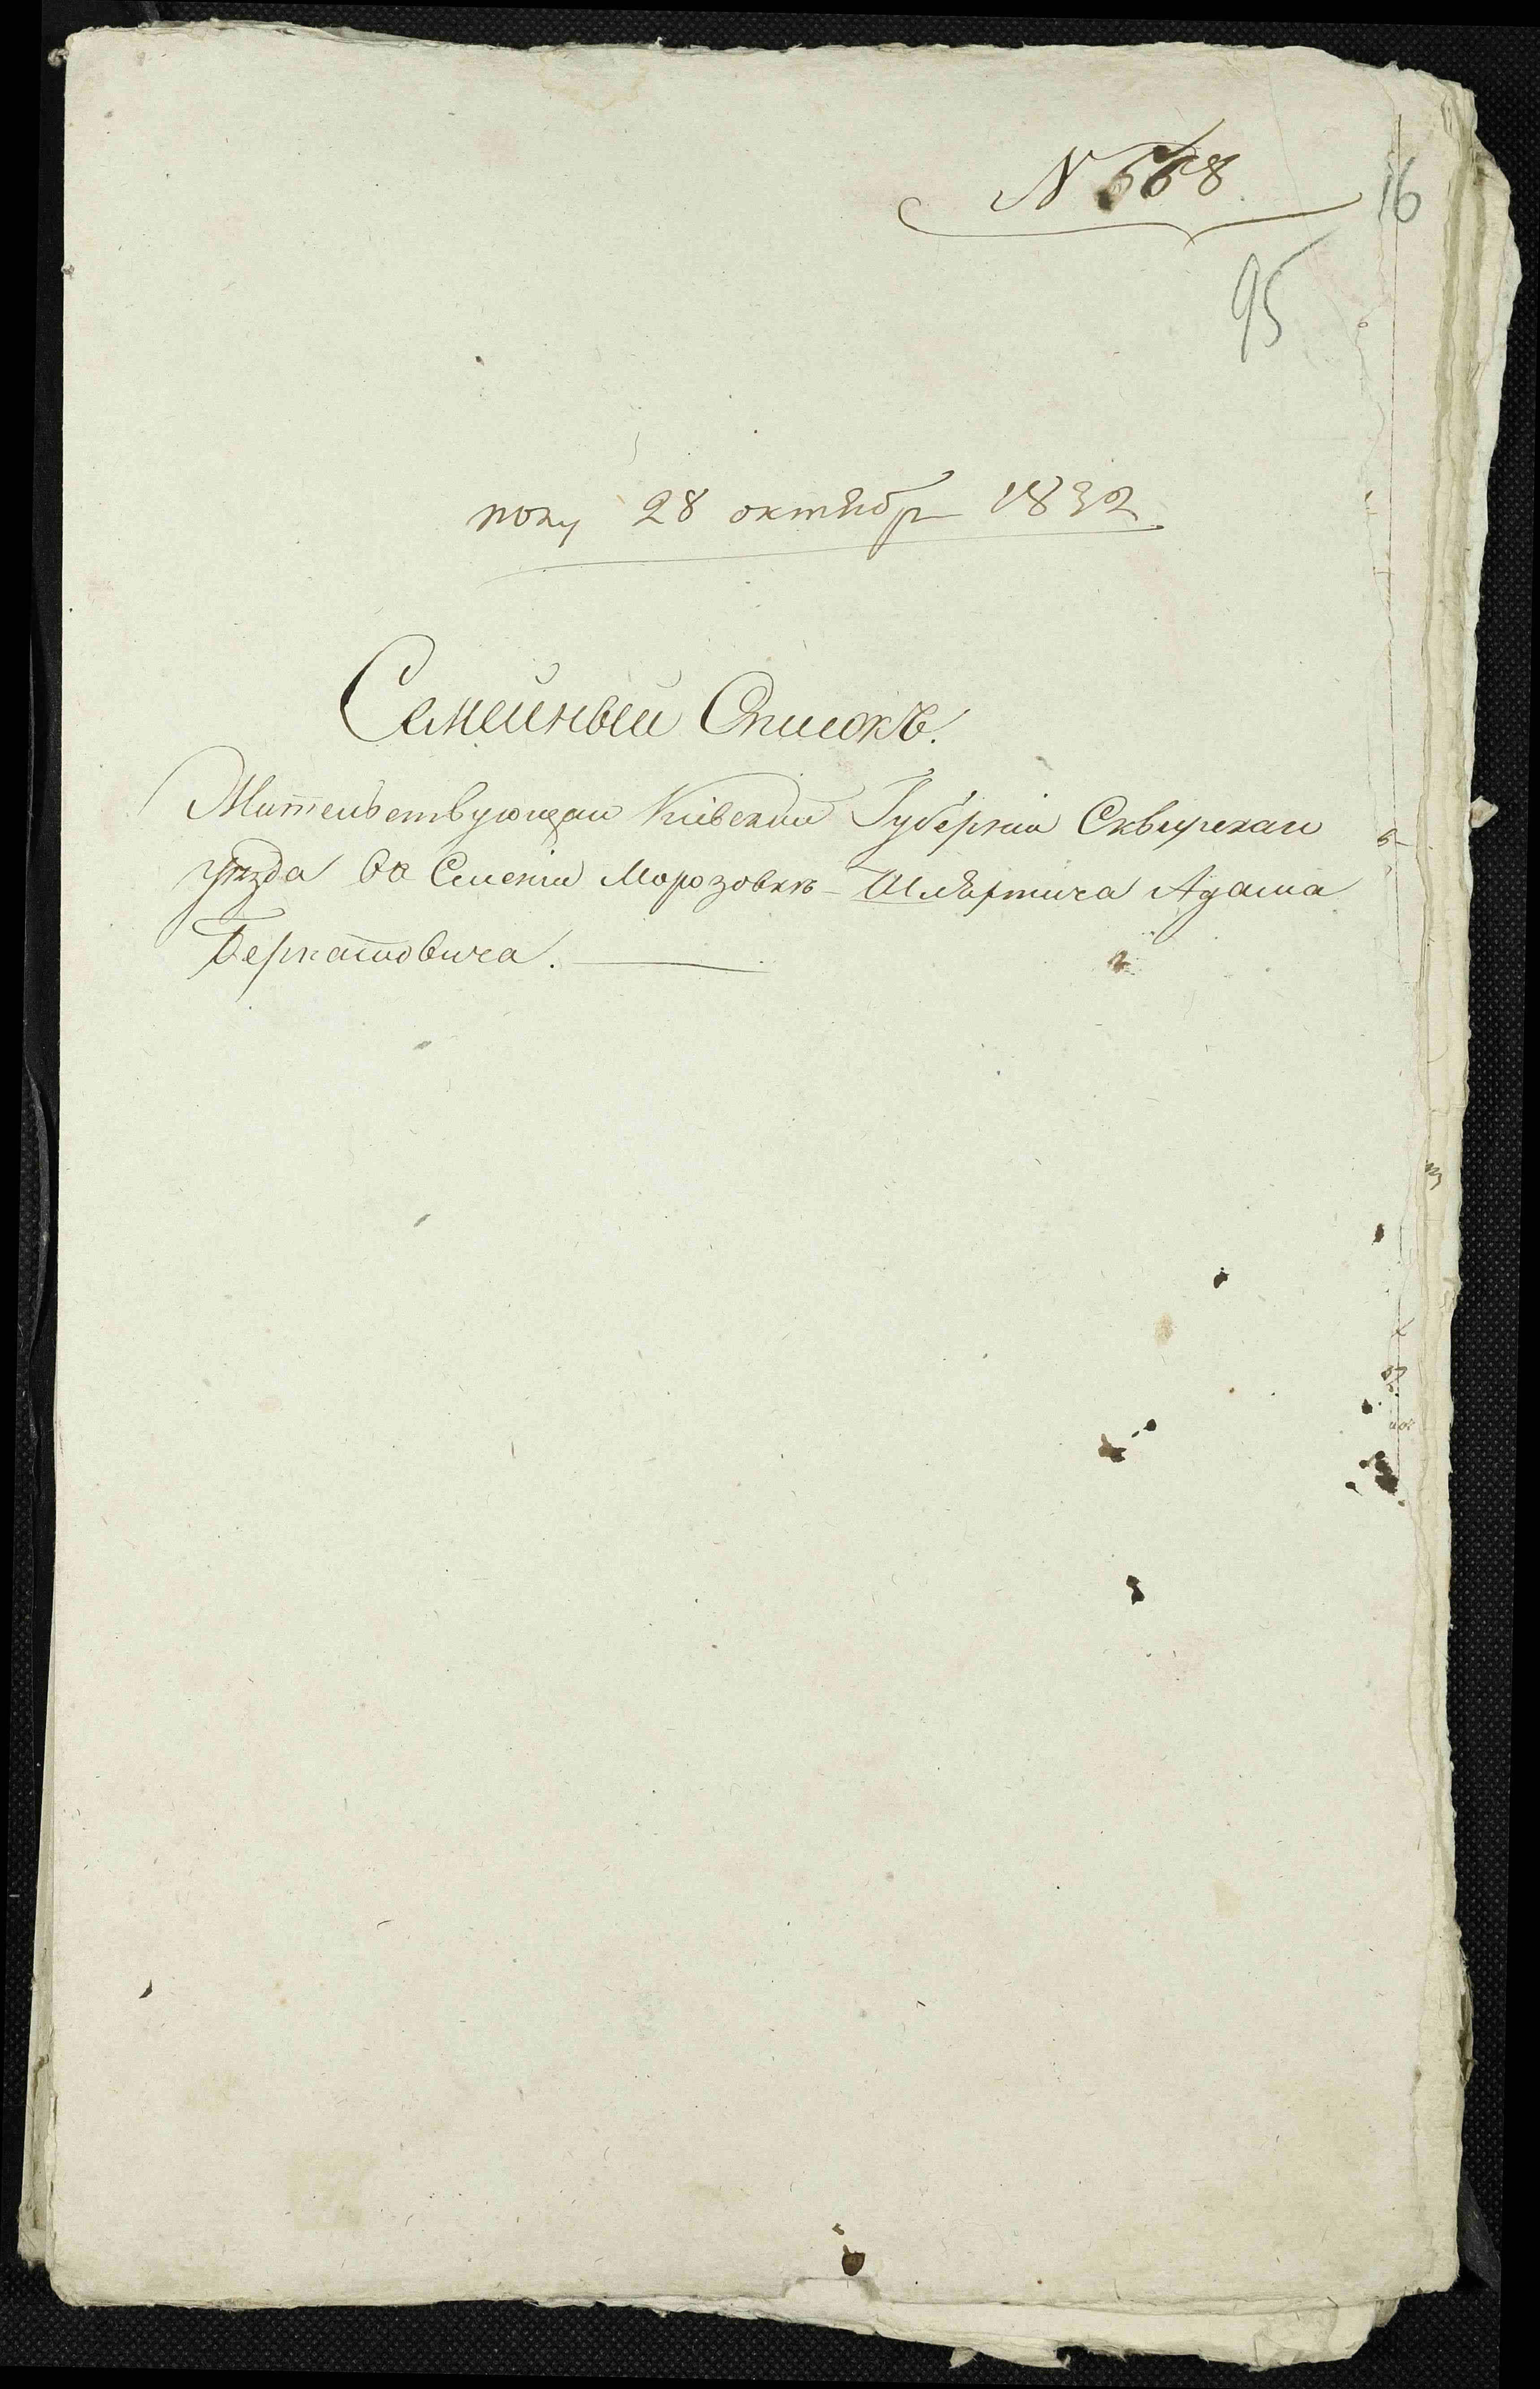 N 668
16
95
полу 28 октябр 1832
Семейный Списокъ.
Жительствующаи Кіевскии Губерніи Сквирскаи
уѣзда во Селеніи Морозовкѣ Шляхтича Адама
Бернатовича.